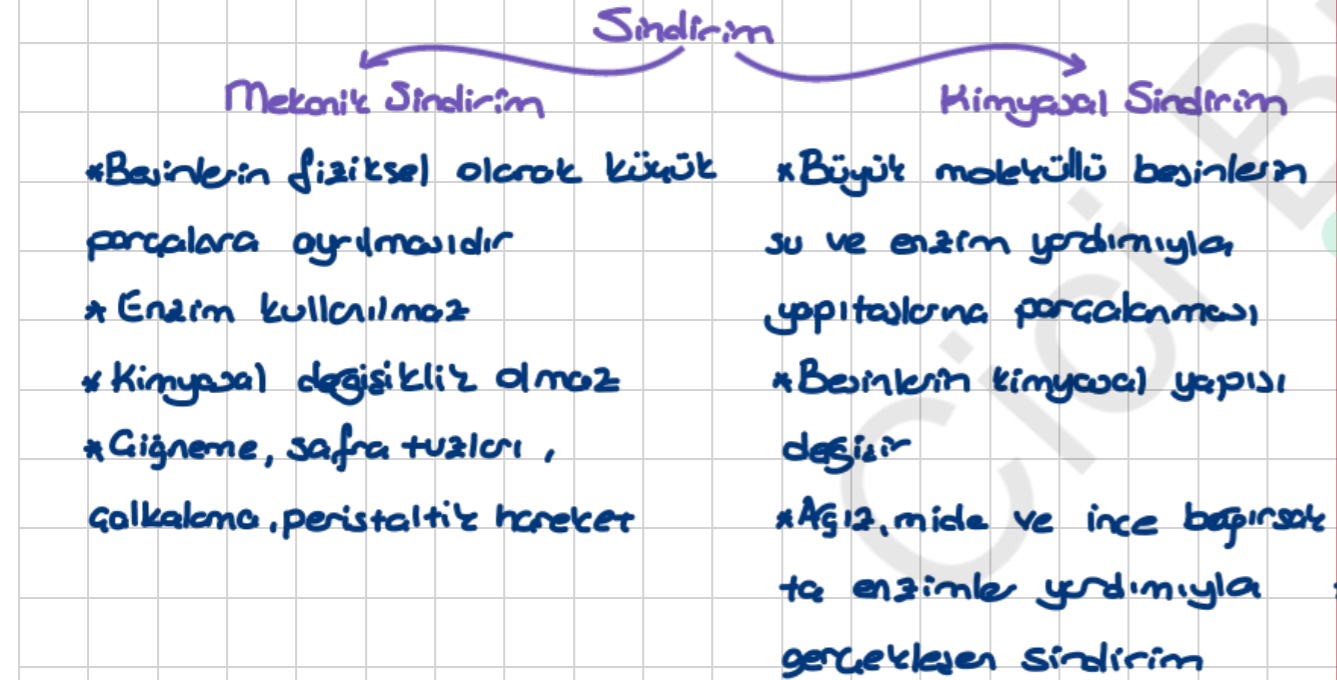 Sindirim
Mekanik Sindirim
*Besinlerin fiziksel olarak küçük
parçalara ayrılmasıdır
* Enzim kullanılmaz
* Kimyasal değişiklik olmaz
*Çiğneme, safra tuzları,
çalkalama, peristaltik hareket
Kimyasal Sindirim
*Büyük moleküllü besinlerin
su ve enzim yardımıyla
yapıtaşlarına parçalanması
*Besinlerin kimyasal yapısı
değişir
*Ağız, mide ve ince bağırsak
ta enzimler yardımıyla
gerçekleşen sindirim
Cici B